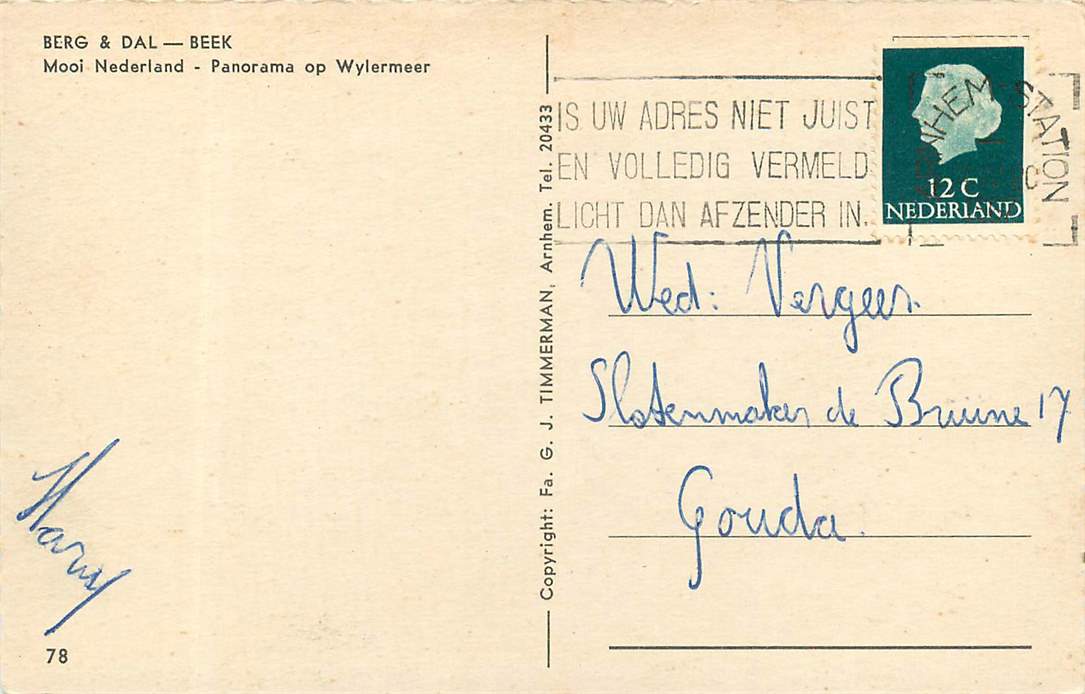 BERG & DAL — BEEK
Mooi Nederland - Panorama op Wylermeer
Harry
78
Copyright: Fa. G. J. TIMMERMAN, Arnhem. Tel. 20433
IS UW ADRES NIET JUIST
EN VOLLEDIG VERMELD
LICHT DAN AFZENDER IN.
ARNHEM-STATION
12 C
NEDERLAND
Wed: Vergeer.
Slotenmaker de Bruïne 17
Gouda.